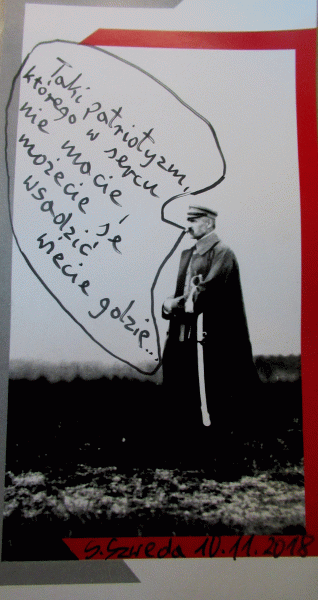 Taki patriotyzm,
którego w sercu
nie macie,
możecie se
wsadzić
wiecie gdzie...
S. Szweda 10.11.2018